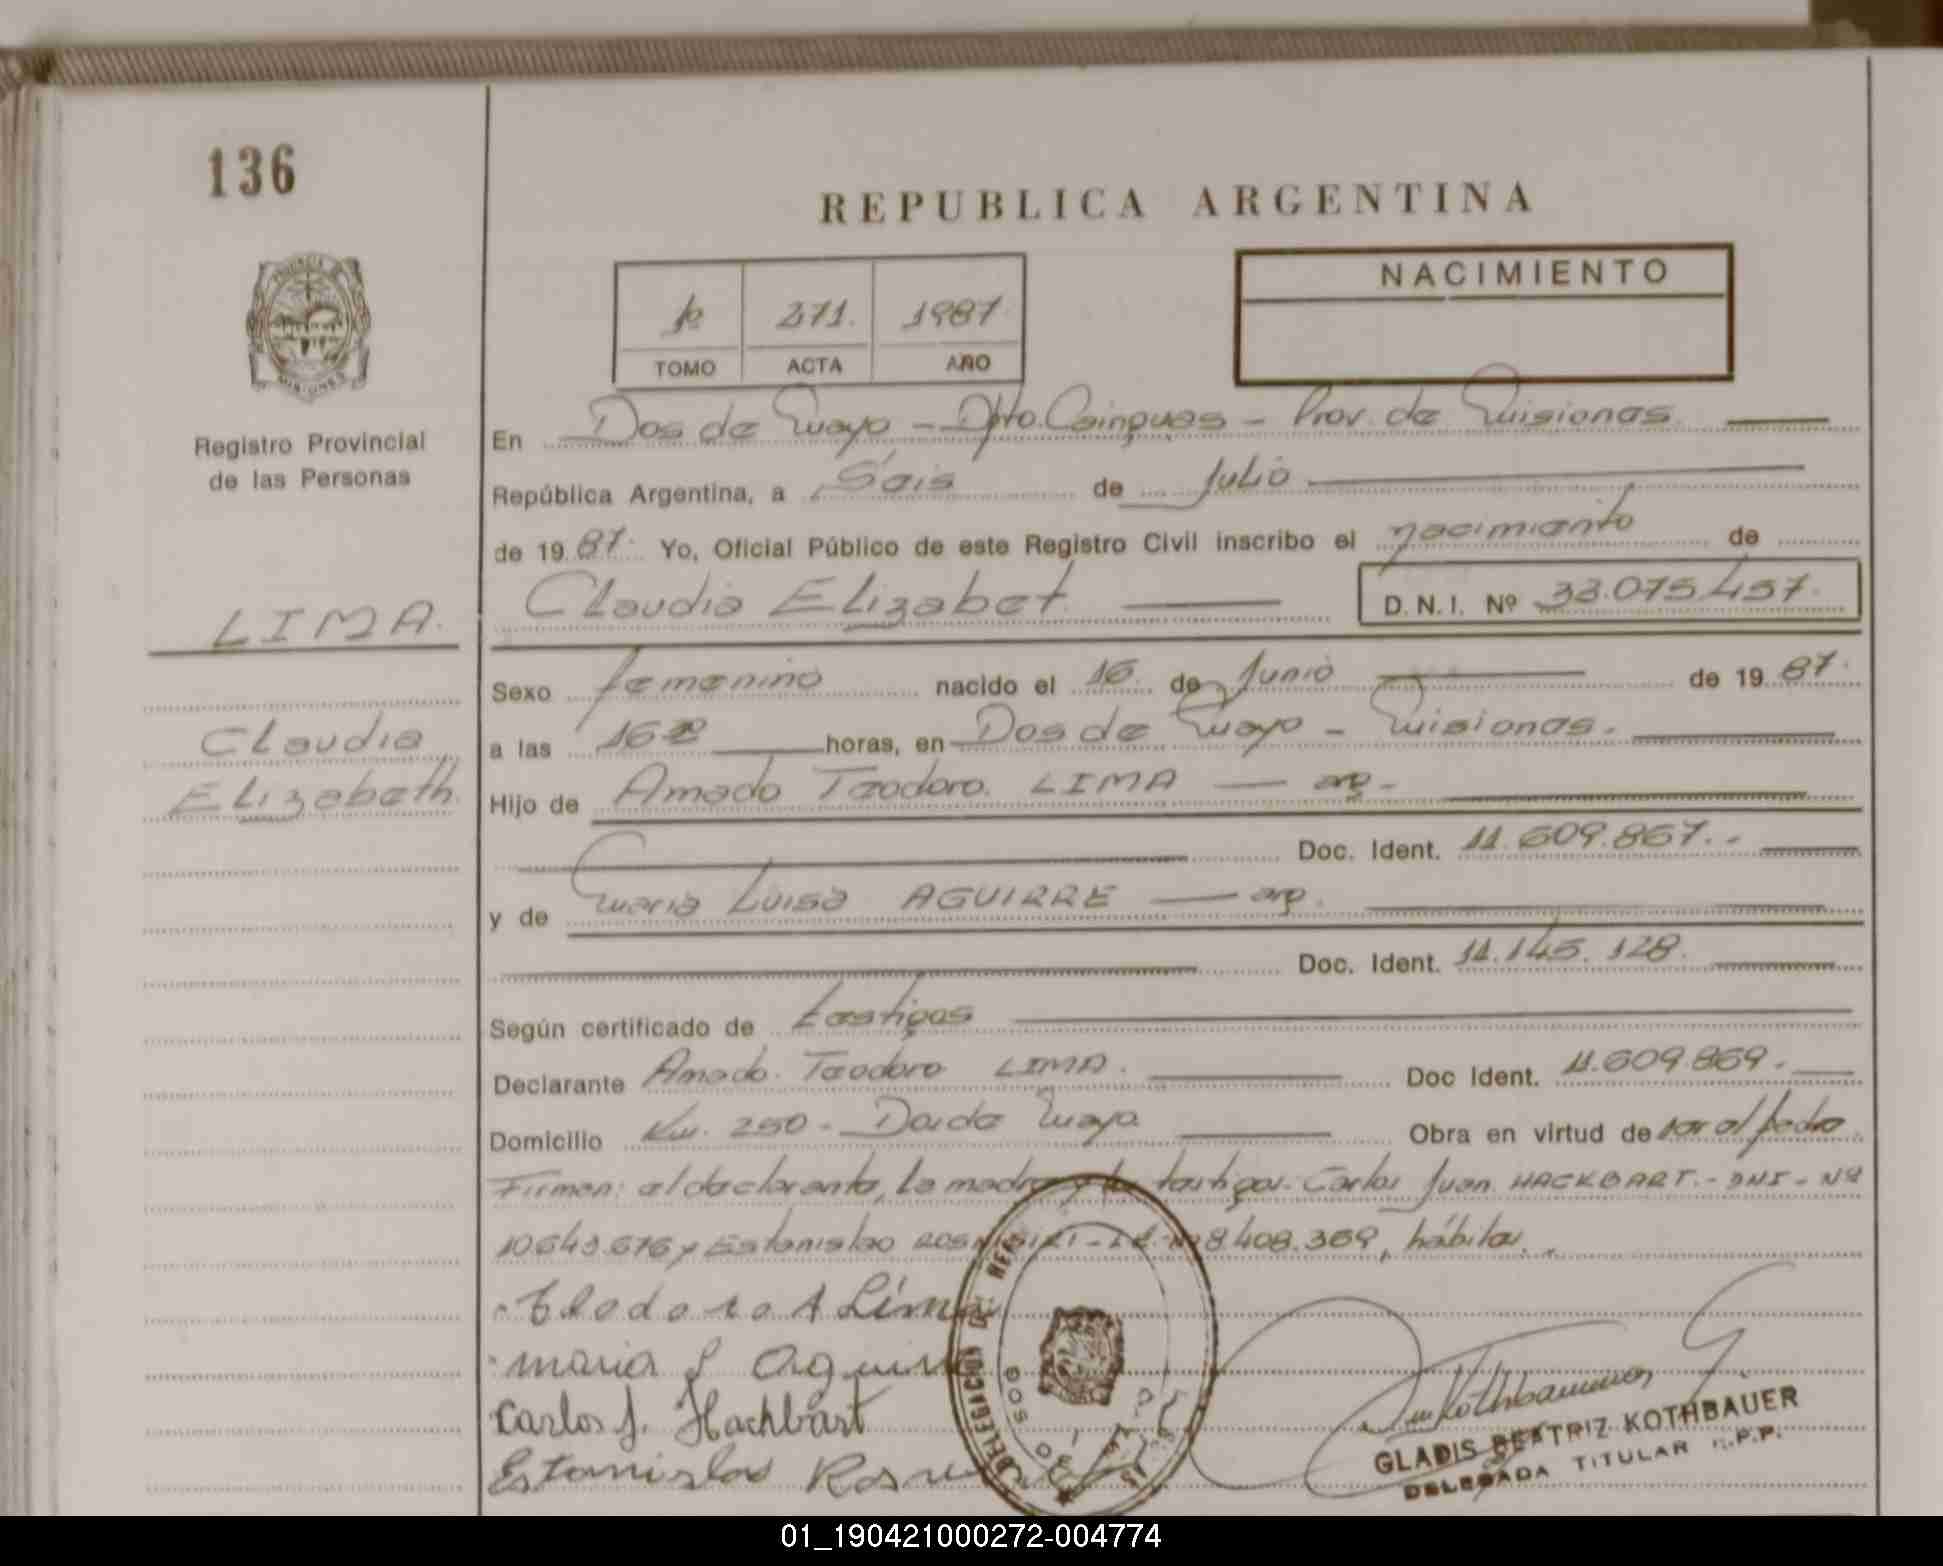 136
REPUBLICA ARGENTINA
PROVINCIA DE MISIONES
1º 271. 1987
TOMO ACTA AÑO
NACIMIENTO
Registro Provincial
de las Personas
En Dos de Mayo - Dpto. Cainguas - Prov. de Misiones.
República Argentina, a Seis de Julio
de 1987. Yo, Oficial Público de este Registro Civil inscribo el nacimiento de
Claudia Elizabet D.N.I. Nº 33.075.457.
LIMA.
Claudia
Elizabeth.
Sexo femenino nacido el 16 de Junio de 1987.
a las 16 horas, en Dos de Mayo - Misiones.
Hijo de Amado Teodoro LIMA - arg -
Doc. Ident. 11.609.867.-
y de Maria Luisa AGUIRRE - arg.
Doc. Ident. 11.145.128.
Según certificado de testigos
Declarante Amado Teodoro LIMA. Doc Ident. 11.609.869.
Domicilio Km. 250 - Dos de Mayo Obra en virtud de ser el padre
Firman: el declarante, la madre y los testigos. Carlos Juan HACKBART.- DNI - Nº
10.643.676 y Estanislao 8.408.369, hábiles.
Teodoro A Lima
maria L Aguirre
Carlos J. Hackbart
Estanislao
DELEGACION
GLADIS BEATRIZ KOTHBAUER
DELEGADA TITULAR R.P.P.
01_190421000272-004774